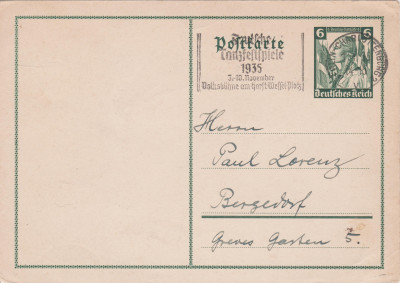 Postkarte
Deutsche
Tanzfestspiele
1935
3.-10. November
Volksbühne am Horst Wessel Platz
6 5
Deutsches Reich
Herrn
Paul Lorenz
Bergedorf
Greves Garten 5.